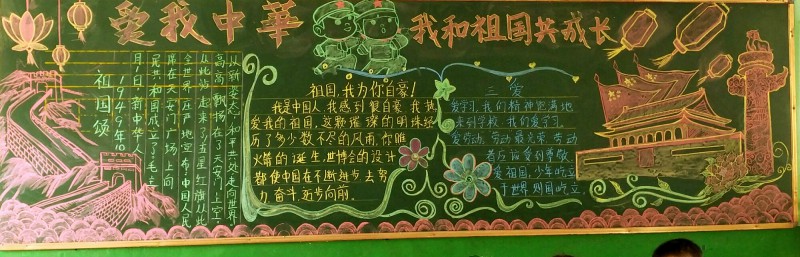 爱我中華
我和祖国共成长
祖国颂
1949年10
月1日，新中华人
民共和国成立了。毛主
席在天安门广场上向
全世界庄严地宣布：中国人民
从此站起来了五星红旗从此
高高飘扬在了天安门上空
以新姿态，和平共处走向世界
祖国，我为你自豪！
我是中国人，我感到自豪，我
爱我的祖国，这颗璀璨的明珠经
历了多少数不尽的风雨，你瞧
火箭的诞生，世博会的设计
都使中国在不断进步去努
力奋斗，迈步向前。
三爱
爱学习，我们精神饱满地
来到学校，我们爱学习。
爱劳动，劳动最光荣，劳动
者应该受到尊敬
爱祖国，少年屹立
于世界，则国屹立。